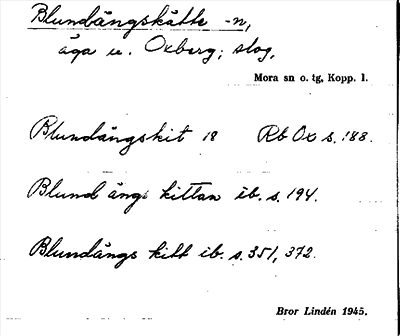 Blundängskätte -n,
äga u. Oxberg; slog.
Mora sn o. tg, Kopp. l.
Blundängskit 18 Rb Ox s. 188.
Blund ängs kittan ib. s. 194.
Blundängs kitt ib. s. 351, 372.
Bror Lindén 1945.